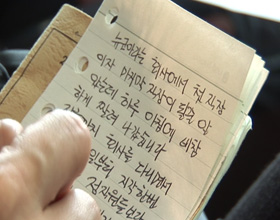 뉴욕이라는 회사에서 첫 직장
이자 마지막 직장이 될줄 알
았는데 하루 아침에 비참
하게 짤려 나갑니다
회사를 다니면서
지각한번
직원들보다